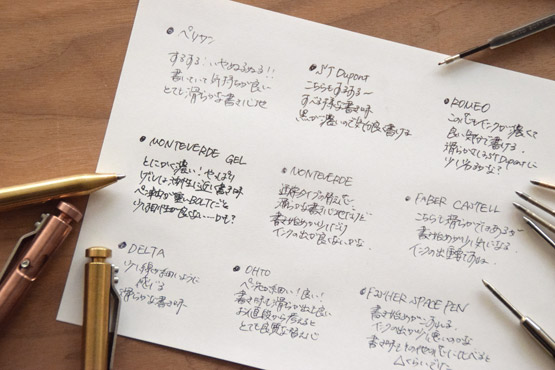 ペリカン
するする…いやぬるぬる!!
書いていて気持ちが良い
とても滑らかな書き心地
ST Dupont
こちらもするする〜
すべる様な書き味
黒が濃いので気持ち良く書ける
ROMEO
こちらもインクが濃くて
良い気分で書ける。
滑らかさはST Dupontに
少し劣るかな?
MONTEVERDE GEL
とにかく濃い!やっぱり
ゲルは油性に近い書き味
ペン自体が重いBOLTだと
少し相性が良くない…かも?
MONTEVERDE
滑らかな書き心地だけど
書き始めが
インクの出が良くないかな。
FABER CASTELL
こちらも滑らかではあるが
書き始めが少し
インクの出
DELTA
少し線が細いように
感じる
滑らかな書き味
OHTO
ペン先が細い!良い!
書き味も滑らか出も良い
お値段から考えると
とても良質な替え芯
FISHER SPACE PEN
書き始めが
インクの出が少し悪いのかな
書き味もその他の
△くらいでした